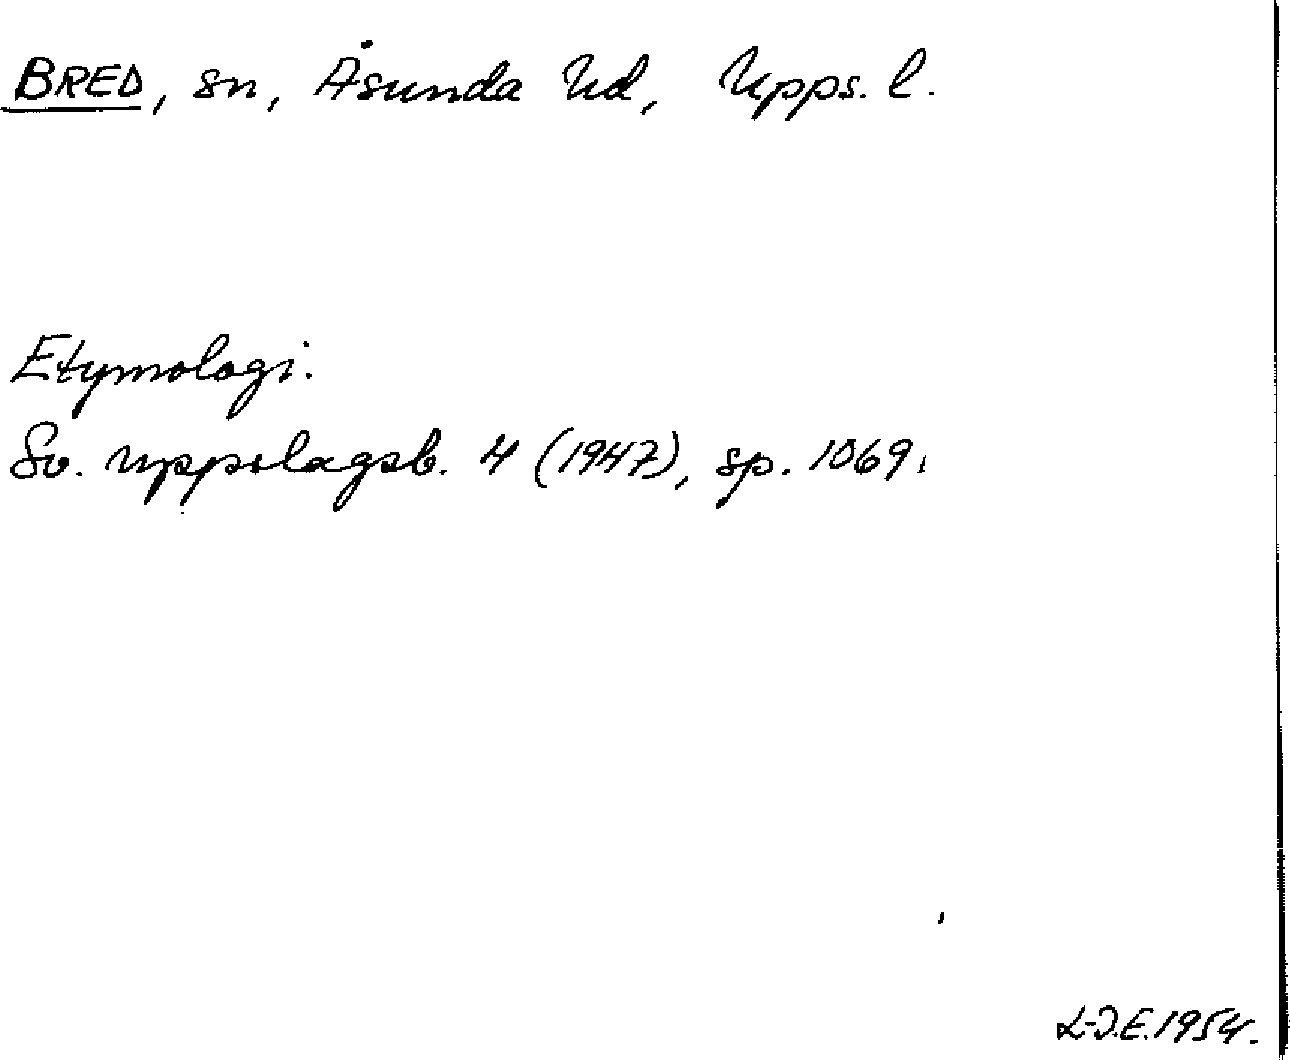 BRED, sn, Åsunda hd, Upps. l.
Etymologi:
Sv. uppslagsb. 4 (1947), sp. 1069.
L-I.E. 1954.